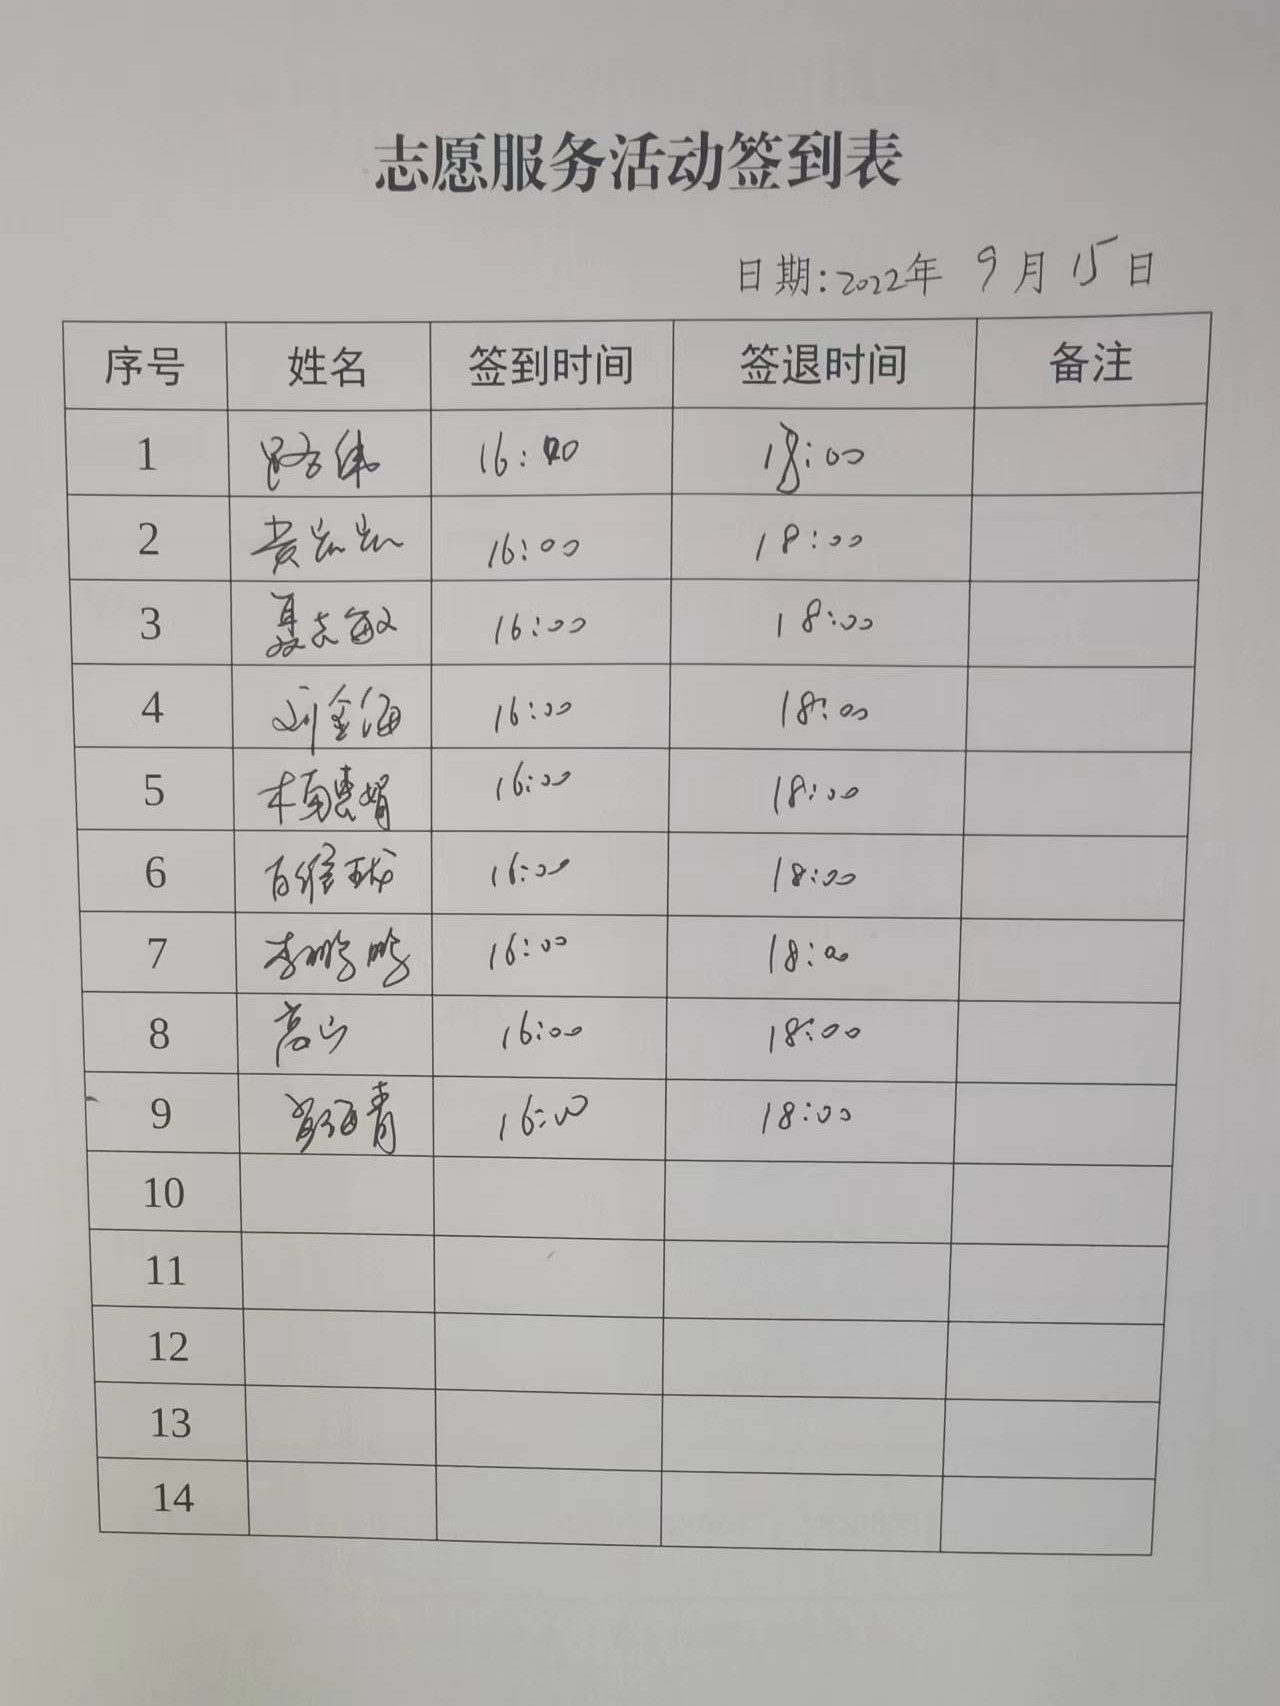 志愿服务活动签到表
日期:2022年 9月 15日
序号 姓名 签到时间 签退时间 备注
1 路伟 16:00 18:00
2 黄凯凯 16:00 18:00
3 聂志敏 16:00 18:00
4 刘金海 16:00 18:00
5 16:00 18:00
6 16:00 18:00
7 李鹏鹏 16:00 18:00
8 高山 16:00 18:00
9 16:00 18:00
10
11
12
13
14